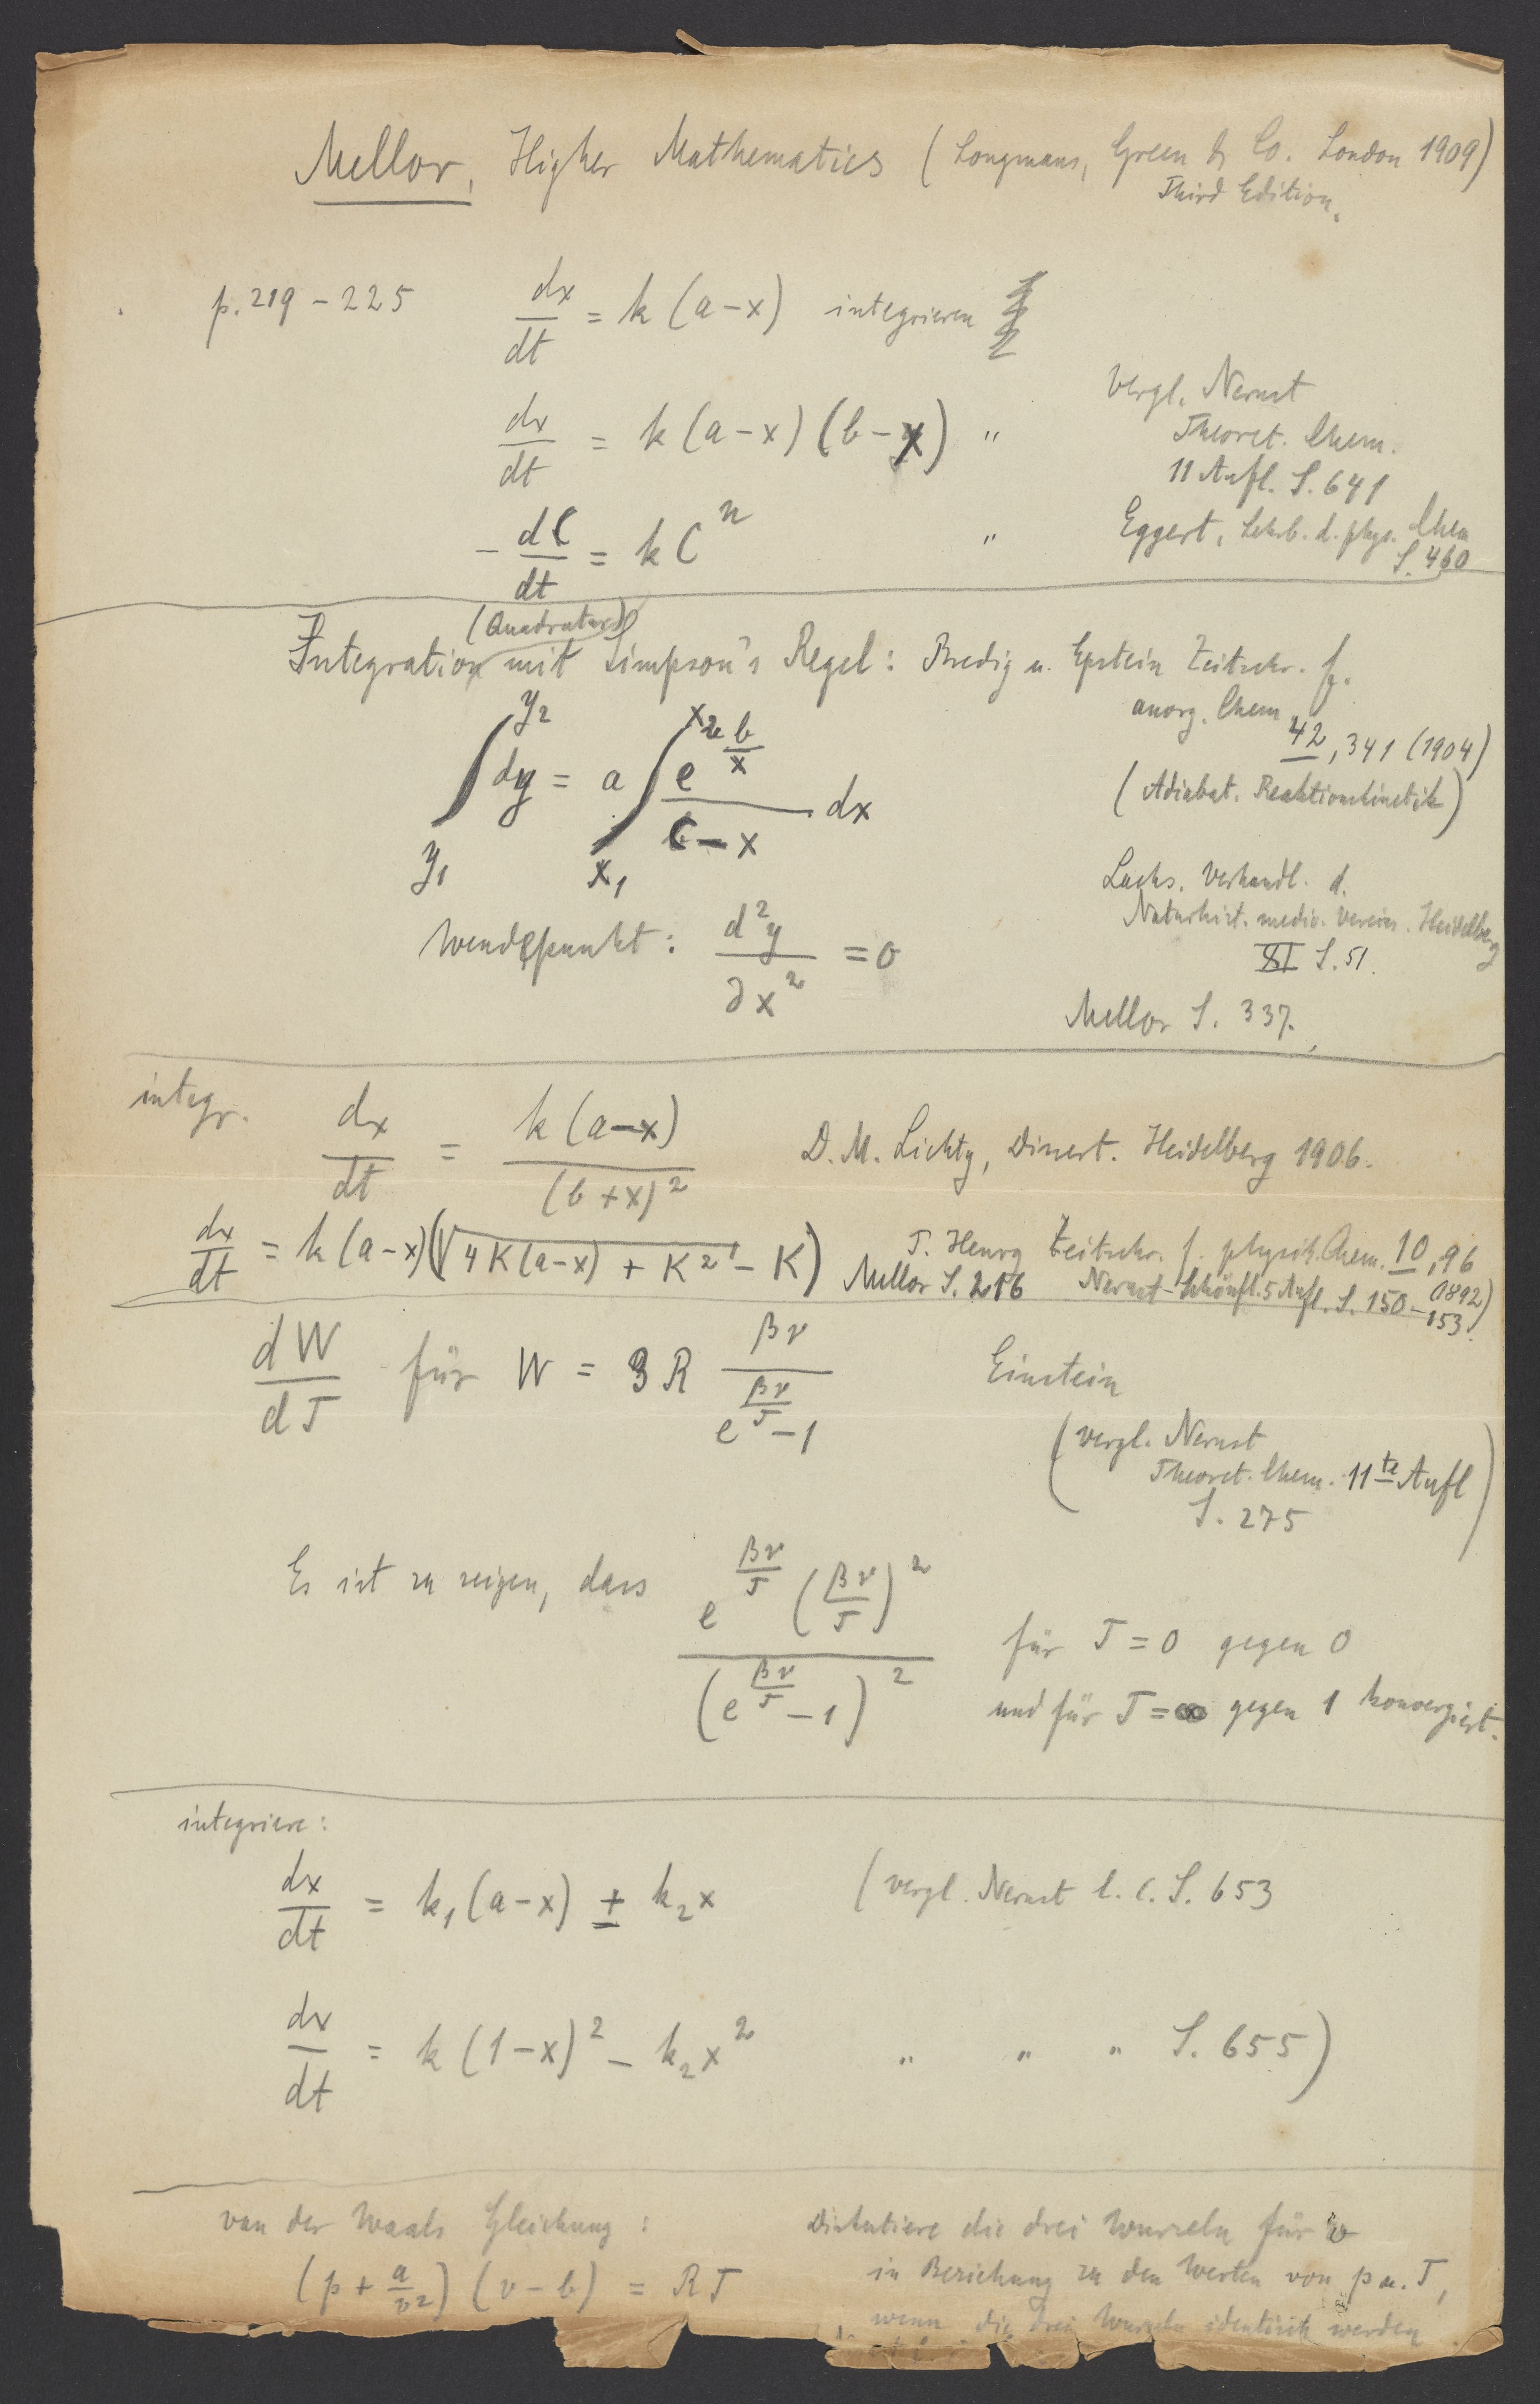 Mellor, Higher Mathematics (Longmans, Green & Co. London 1909)
Third Edition.
p. 219 - 225 dx/dt = k (a-x) integrieren
dx/dt = k (a-x) (b-x) "
vergl. Nernst
Theoret. Chem.
11 Aufl. S. 641
- dC/dt = k C^n "
Eggert, Lehrb. d. phys. Chem
S. 460
(Quadratur)
Integration mit Simpson's Regel: Bredig u. Epstein Zeitschr. f.
anorg. Chem.
42, 341 (1904)
(Adiabat. Reaktionskinetik)
∫_{y1}^{y2} dy = a ∫_{x1}^{x2} e^{b/x}/(C-x) dx
Lucks. Verhandl. d.
Naturhist. mediz. Vereins. Heidelberg
XI S. 51.
Wendepunkt: d²y/∂x² = 0
Mellor S. 337.
integr. dx/dt = k (a-x)/(b+x)² D. M. Lichty, Dissert. Heidelberg 1906.
dx/dt = k (a-x) (√(4K(a-x) + K²) - K) P. Henry Zeitschr. f. physik. Chem. 10, 96
(1892)
Mellor S. 216 Nernst-Schönfl. 5 Aufl. S. 150-153.
dW/dT für W = 3 R βν/(e^{βν/T} - 1) Einstein
(vergl. Nernst
Theoret. Chem. 11te Aufl
S. 275)
Es ist zu zeigen, dass e^{βν/T} (βν/T)² / (e^{βν/T} - 1)²
für T = 0 gegen 0
und für T = ∞ gegen 1 konvergiert.
integriere:
dx/dt = k₁ (a-x) ± k₂x (vergl. Nernst l. c. S. 653
dx/dt = k (1-x)² - k₂x² " " " S. 655)
van der Waals Gleichung: Diskutiere die drei Wurzeln für v
(p + a/v²) (v - b) = RT in Beziehung zu den Werten von p u. T,
wenn die drei Wurzeln identisch werden